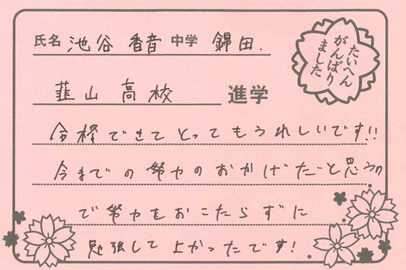 氏名 池谷 香音 中学 錦田.
たいへん
がんばり
ました
韮山高校 進学
合格できてとってもうれしいです!!
今までの努力のおかげだと思うの
で努力をおこたらずに
勉強して上かったです!